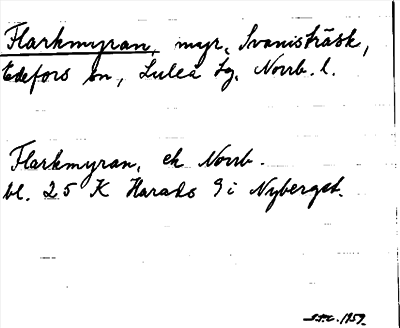 Flarkmyran, myr, Svanisträsk,
Edefors sn, Luleå tg, Norrb. l.
Flarkmyran, ek Norrb.
bl. 25 K Harads 9 i Nyberget.
1959.